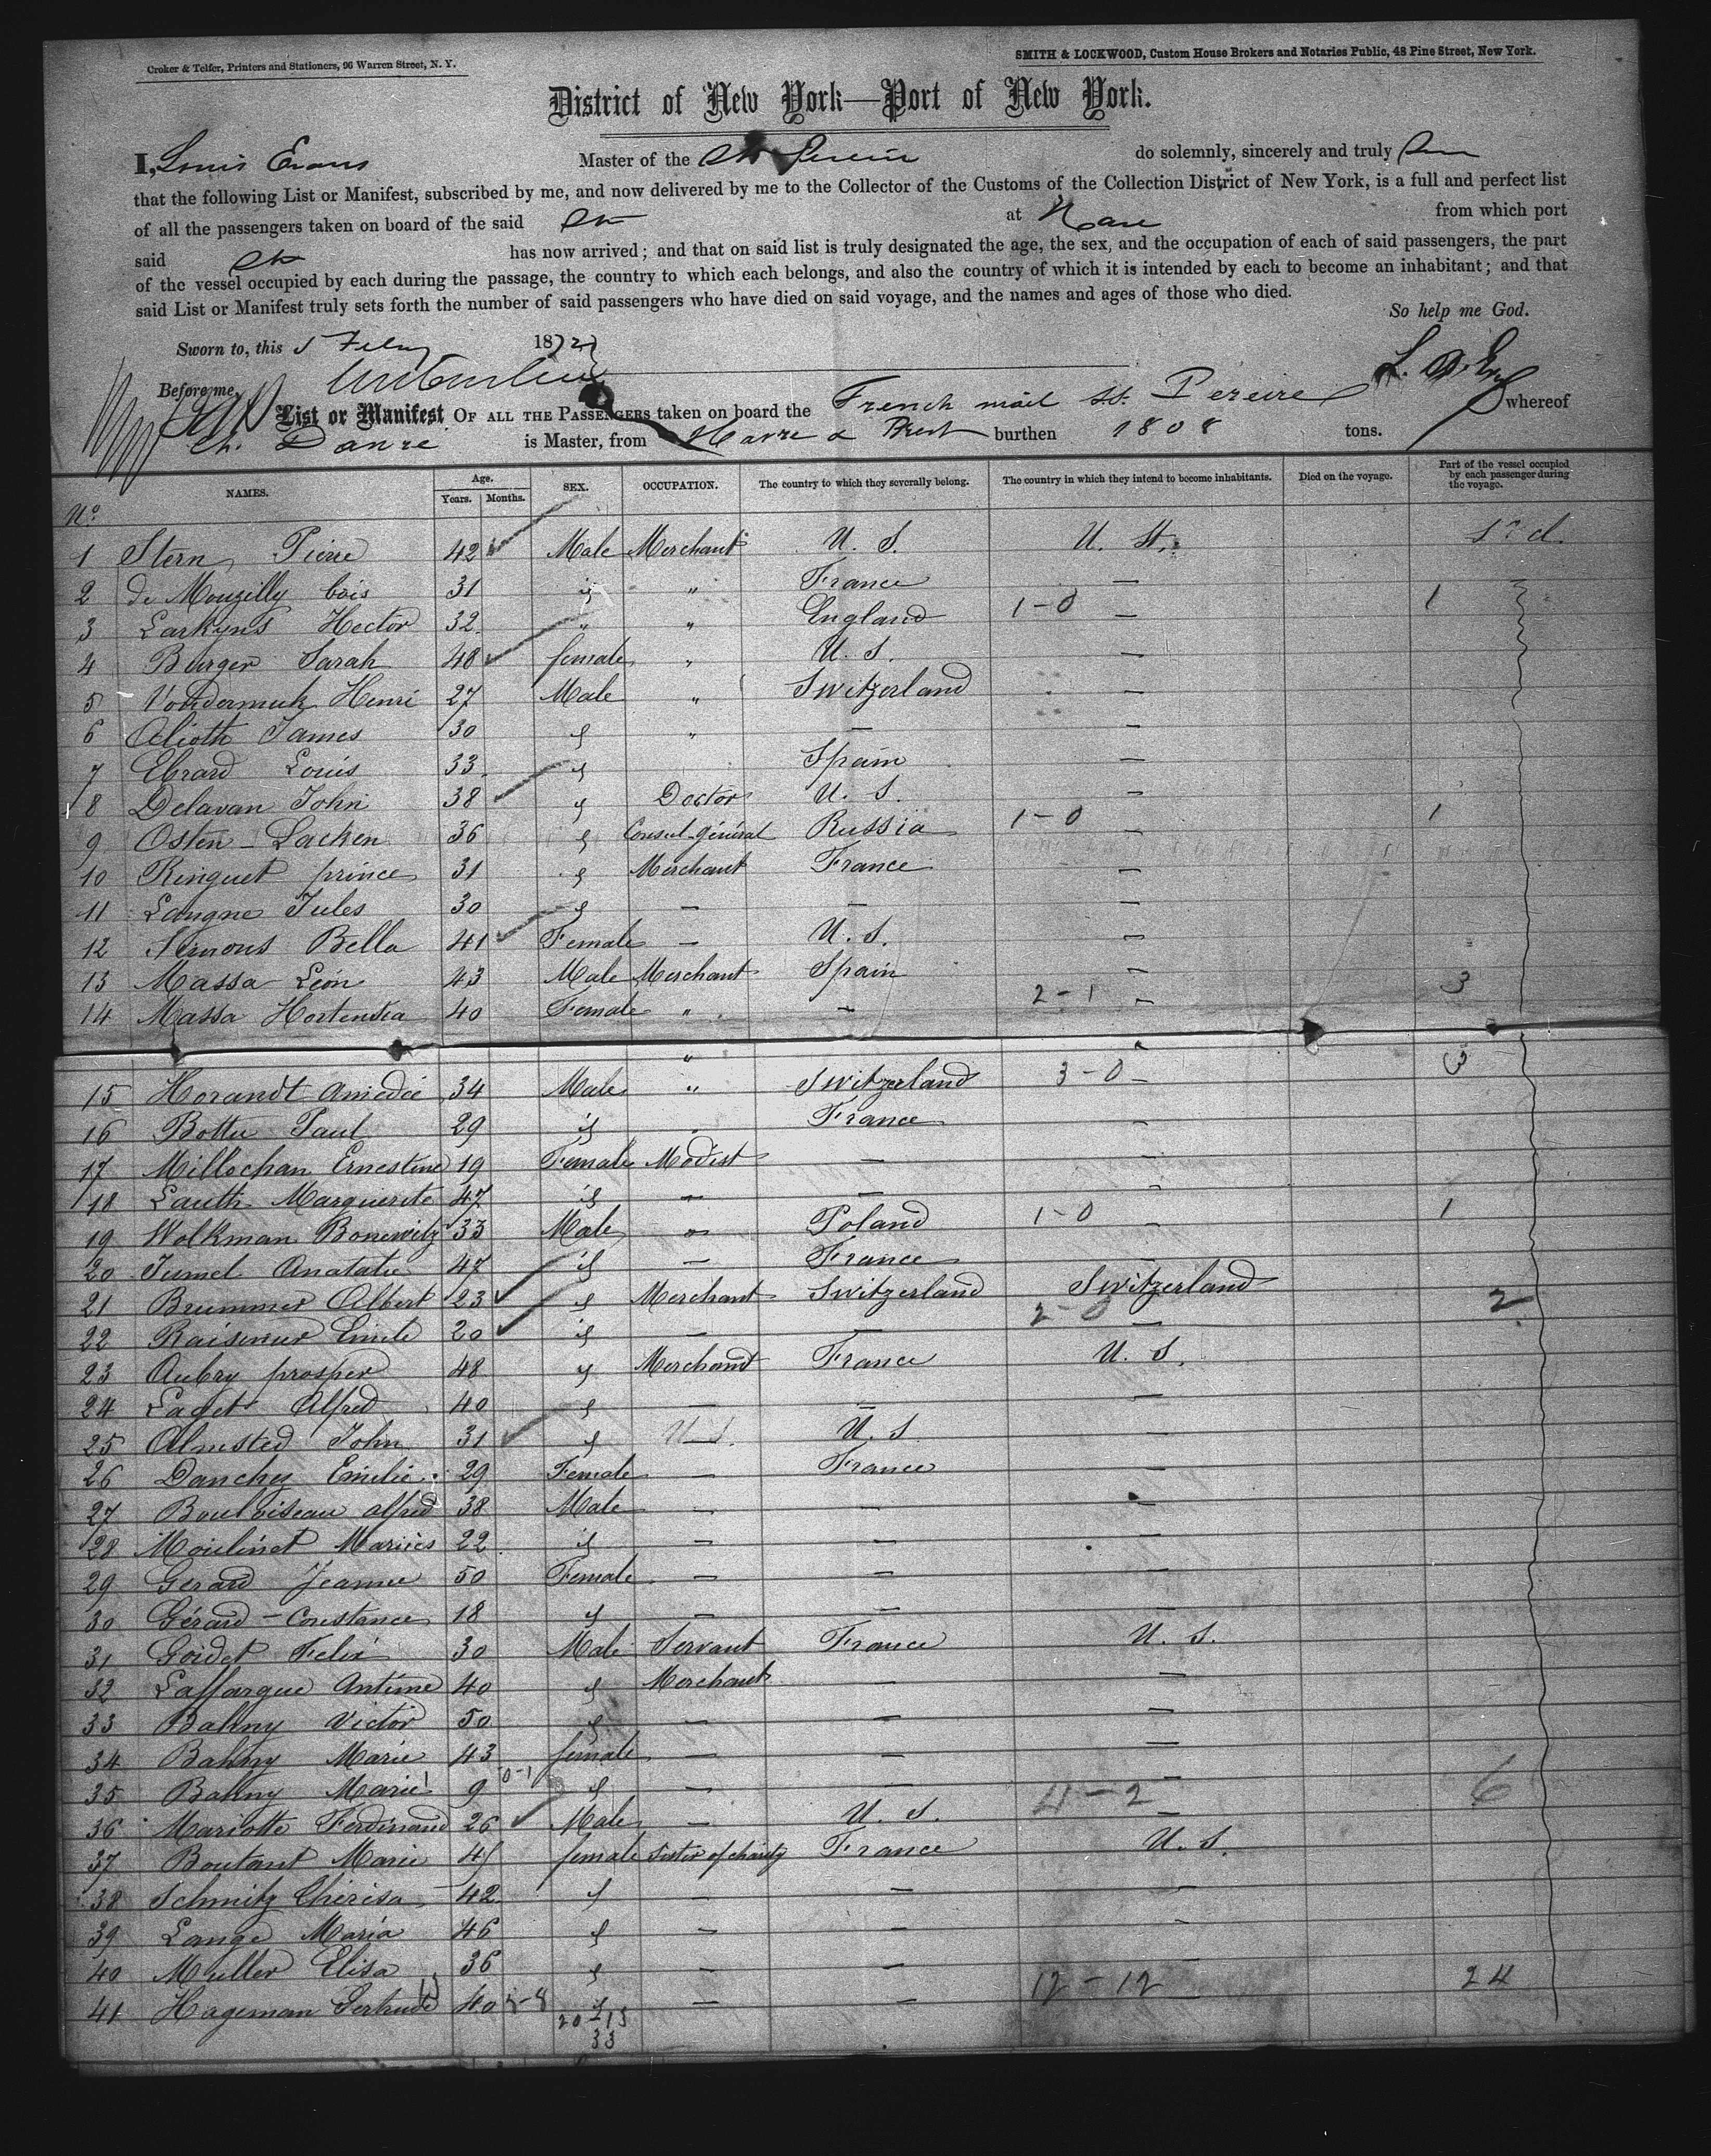 Croker & Telfer, Printers and Stationers, 96 Warren Street, N. Y.
SMITH & LOCKWOOD, Custom House Brokers and Notaries Public, 48 Pine Street, New York.
District of New York—Port of New York.
I, Louis Evans Master of the do solemnly, sincerely and truly
that the following List or Manifest, subscribed by me, and now delivered by me to the Collector of the Customs of the Collection District of New York, is a full and perfect list
of all the passengers taken on board of the said at from which port
said has now arrived; and that on said list is truly designated the age, the sex, and the occupation of each of said passengers, the part
of the vessel occupied by each during the passage, the country to which each belongs, and also the country of which it is intended by each to become an inhabitant; and that
said List or Manifest truly sets forth the number of said passengers who have died on said voyage, and the names and ages of those who died.
So help me God.
Sworn to, this 1872
Before me,
List or Manifest OF ALL THE PASSENGERS taken on board the French mail ss. Pereire whereof
Danré is Master, from Havre & Brest burthen 1808 tons.
NAMES. Age. Years. Months. SEX. OCCUPATION. The country to which they severally belong. The country in which they intend to become inhabitants. Died on the voyage. Part of the vessel occupied by each passenger during the voyage.
No.
1 Stern Pierre 42 Male Merchant U. S. U. St.
2 de Mouzilly bois 31 " France —
3 Larkyns Hector 32 " " England 1-0 — 1
4 Burger Sarah 48 female " U. S. —
5 Henri 27 Male " Switzerland —
6 Alioth James 30 " — —
7 Ebrard Louis 33 Spain —
8 Delavan John 38 Doctor U. S. —
9 Osten-Sacken 36 Consul-général Russia 1-0 — 1
10 Ringuet prince 31 Merchant France —
11 Langne Jules 30 — — —
12 Simons Bella 41 Female — U. S. —
13 Massa Léon 43 Male Merchant Spain —
14 Massa Hortensia 40 Female " — 2-1 — 3
15 Horandt Amédée 34 Male " Switzerland 3-0 — 3
16 Bottu Paul 29 France —
17 Millochan Ernestine 19 Female Modist — —
18 Lauth Marguerite 47 — — —
19 Wolkman Bonewitz 33 Male Poland 1-0 — 1
20 Jumel Anatalie 47 — France —
21 Brummer Albert 23 Merchant Switzerland Switzerland
22 Emile 20 — — 2-0 — 2
23 Aubry prosper 48 Merchand France U. S.
24 Ladet Alfred 40 — — —
25 Olmsted John 31 U. S. U. S. —
26 Danchy Emilie 29 Female — France —
27 Bouloiseau alfred 38 Male — — —
28 Moulinet Mariùs 22 — — —
29 Gerard Jeanne 50 Female — — —
30 Gérard - Constance 18 — — —
31 Goidet Felix 30 Male Servant France U. S.
32 Laffargue Antime 40 Merchant — —
33 Bahny Victor 50 — — —
34 Bahny Marie 43 female — — —
35 Bahny Marie 9 0-1 — — 4-2 — 6
36 Mariotte Ferdinand 26 Male — U. S. —
37 Boutant Marie female Sister of charity France U. S.
38 Schmitz Thérisa 42 — — —
39 Lange Maria 46 — — —
40 Muller Elisa 36 — — —
41 Hageman Gertrude 40 — — 12-12 24
20-13
33